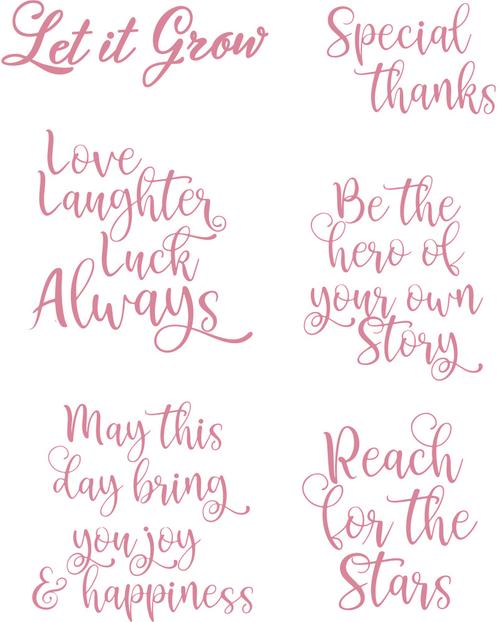 Let it Grow
Special
thanks
Love
Laughter
Luck
Always
Be the
hero of
your own
Story
May this
day bring
you joy
& happiness
Reach
for the
Stars